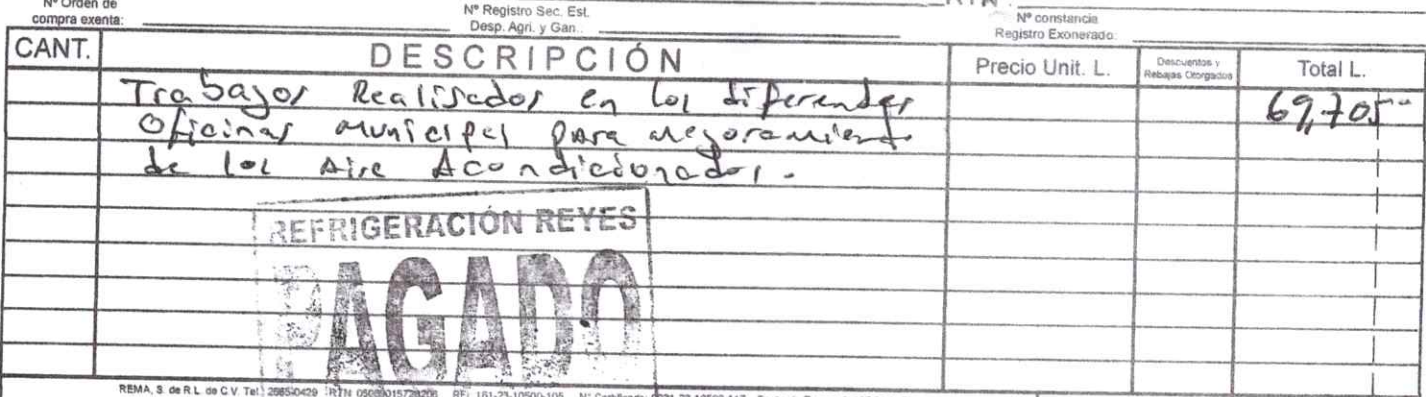 Nº Orden de
compra exenta:
Nº Registro Sec. Est.
Desp. Agri. y Gan..
Nº constancia
Registro Exonerado:
CANT. DESCRIPCIÓN Precio Unit. L. Descuentos y Rebajas Otorgados Total L.
Trabajos Realisados en los diferendes 69,705
Oficinas municipal para mejoramiento
de los Aire Acondicionados.
REFRIGERACIÓN REYES
PAGADO
REMA, S. de R.L. de C.V. Tel.: